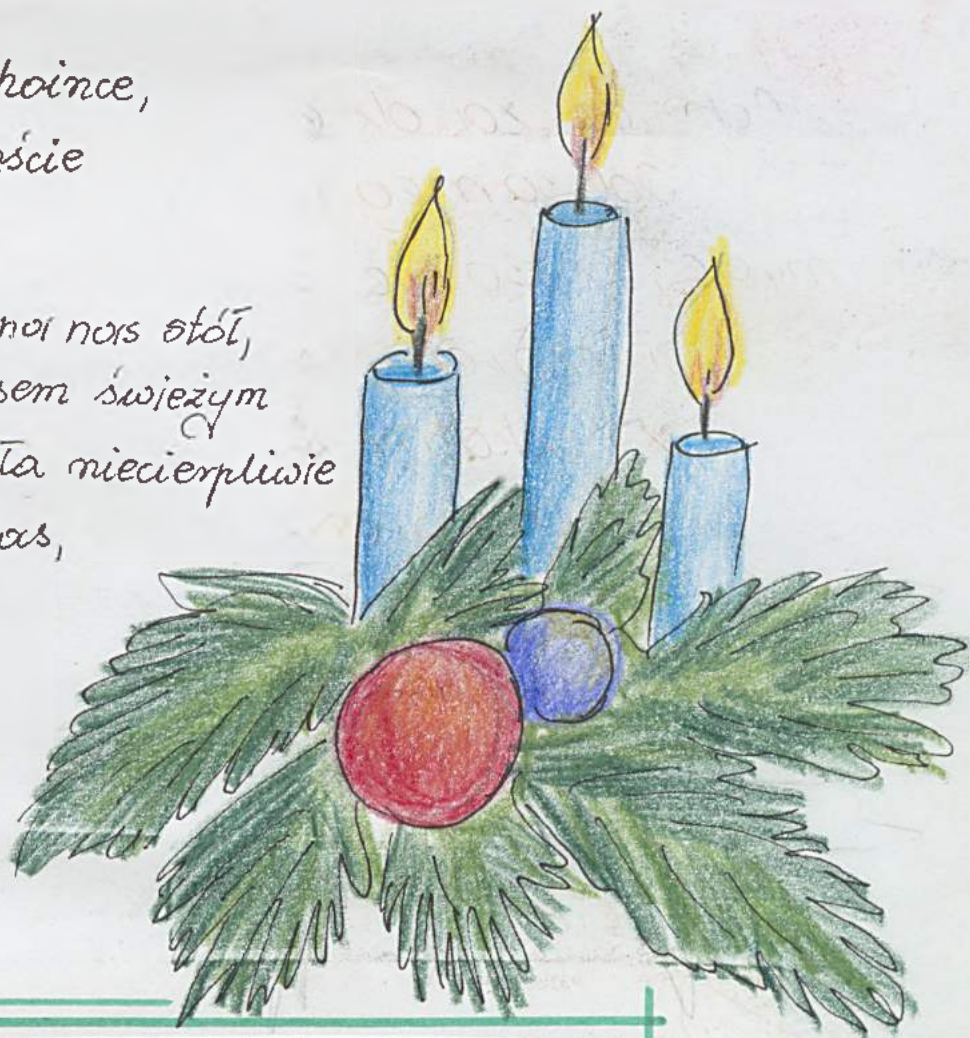 hoince,
oście
na nas stół,
sem świeżym
ła niecierpliwie
as,